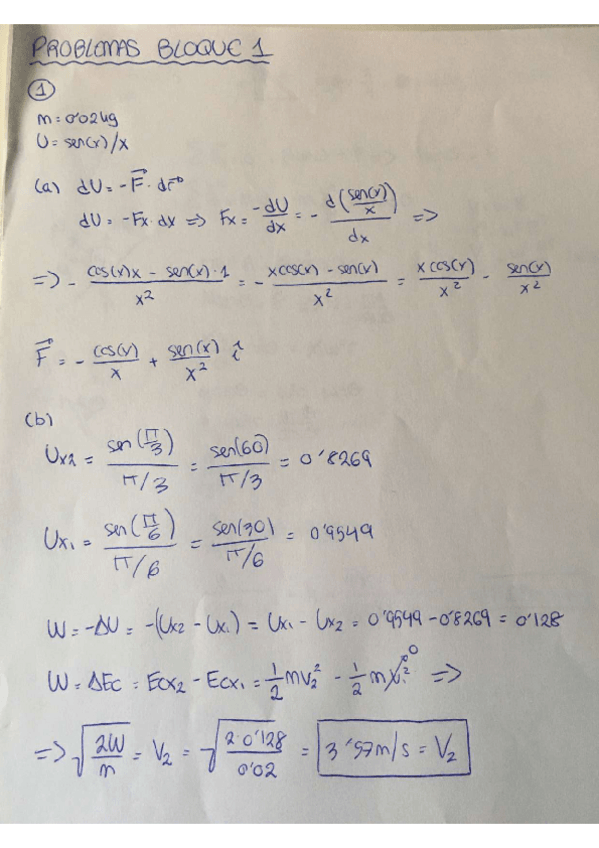 PROBLEMAS BLOQUE 1
①
m = 0'02 kg
U = sen(x)/x
(a) dU = -F⃗ · dr⃗
dU = -Fx · dx => Fx = -dU/dx = - d(sen(x)/x)/dx =>
=> - (cos(x)x - sen(x)·1)/x² = - (xcos(x) - sen(x))/x² = xcos(x)/x² - sen(x)/x²
F⃗ = - cos(x)/x + sen(x)/x² î
(b)
Ux2 = sen(π/3)/(π/3) = sen(60)/(π/3) = 0'8269
Ux1 = sen(π/6)/(π/6) = sen(30)/(π/6) = 0'9549
W = -ΔU = -(Ux2 - Ux1) = Ux1 - Ux2 = 0'9549 - 0'8269 = 0'128
W = ΔEc = Ecx2 - Ecx1 = 1/2 mv₂² - 1/2 mv₁²⁰ =>
=> √(2W/m) = V₂ = √(2·0'128/0'02) = 3'57m/s = V₂